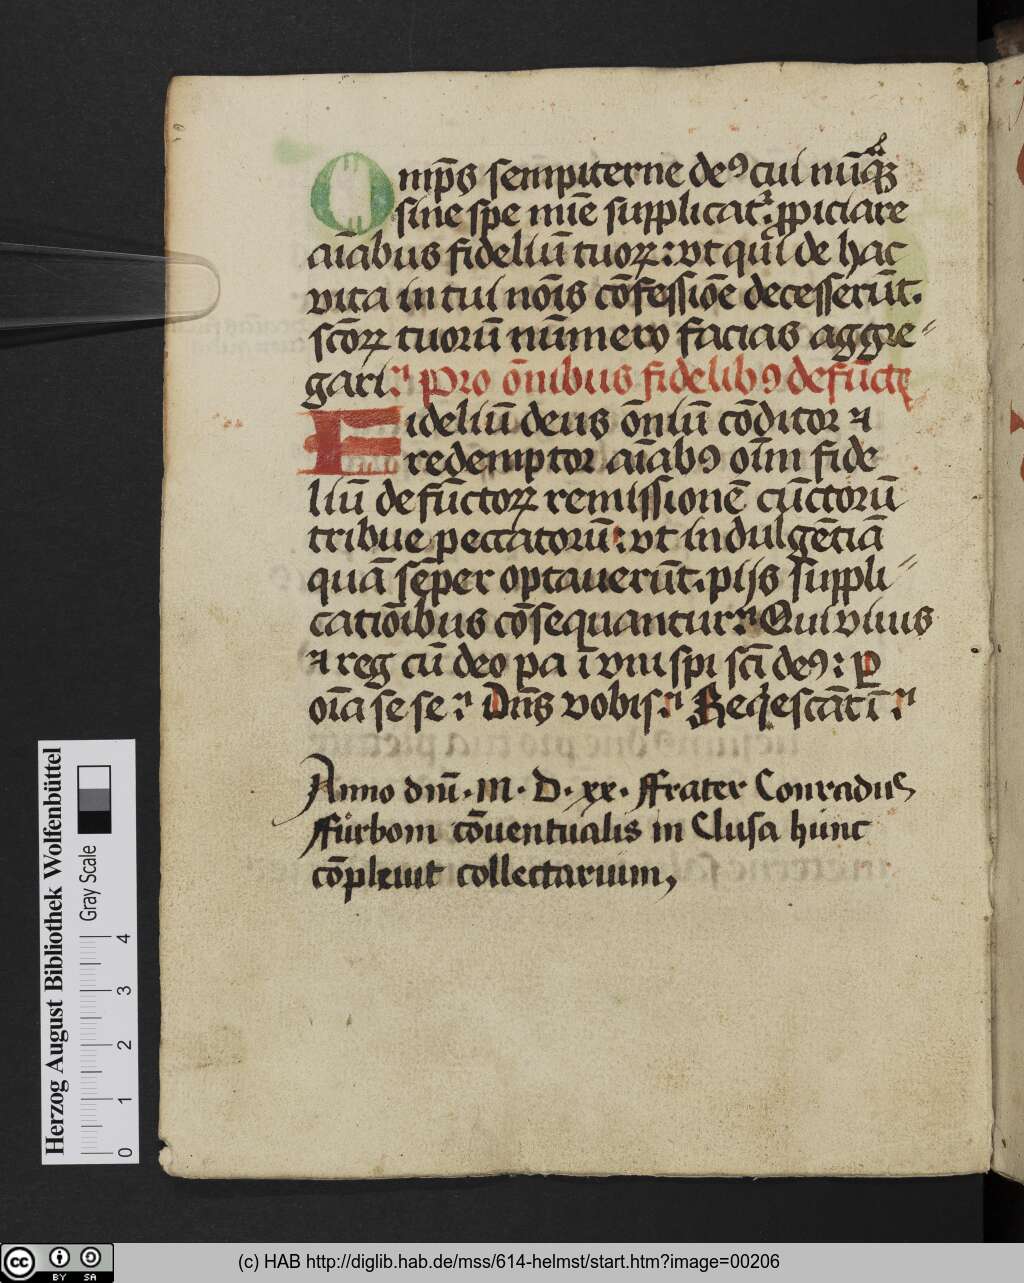 Omp̄s sempiterne deꝰ cui nūqᷓꝫ
sine spe mīe supplicatᷣ: ꝓpiciare
aīabus fideliū tuoꝝ: vt qui de hac
vita in tui nōis cōfessiōe decesserūt.
scōꝝ tuorū nūmero facias aggre⸗
gari: Pro ōnibus fidelibꝰ defūctꝭ
Fideliū deus ōniū cōditor ⁊
redemptor aīabꝰ oīm fide
liū defūctoꝝ remissionē cūctorū
tribue peccatorū: vt indulgētiā
quā sēper optauerūt. pijs suppli⸗
catiōibus cōsequantur: Qui viuis
⁊ reg cū deo pa ī vni spi scī deꝰ: ꝑ
oīa se se: Dn̄s vobis: Reqescāt ī:
Anno dn̄i. M. D. xx. ffrater Conradus
ffůrbom cōuentualis in Clusa hunc
cōpleuit collectarium,
Herzog August Bibliothek Wolfenbüttel
Gray Scale
0 1 2 3 4
cc BY SA
(c) HAB http://diglib.hab.de/mss/614-helmst/start.htm?image=00206